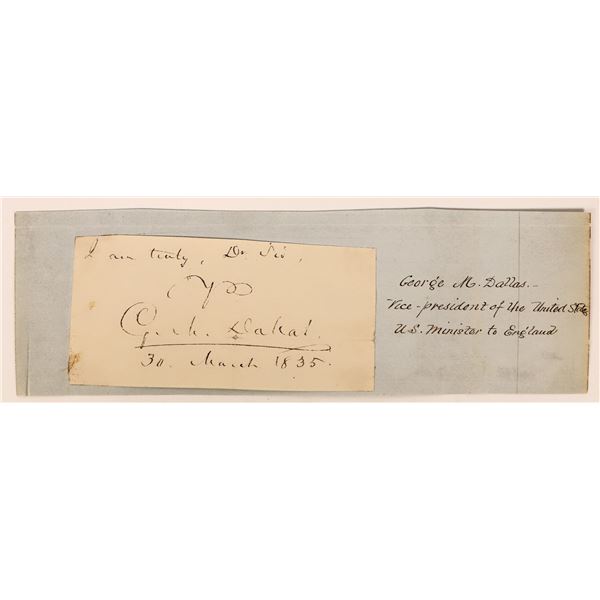 I am truly, Dr Sir,
Yrs
G. M. Dallas.
30. March 1835.
George M. Dallas.-
Vice-president of the United States
U.S. Minister to England